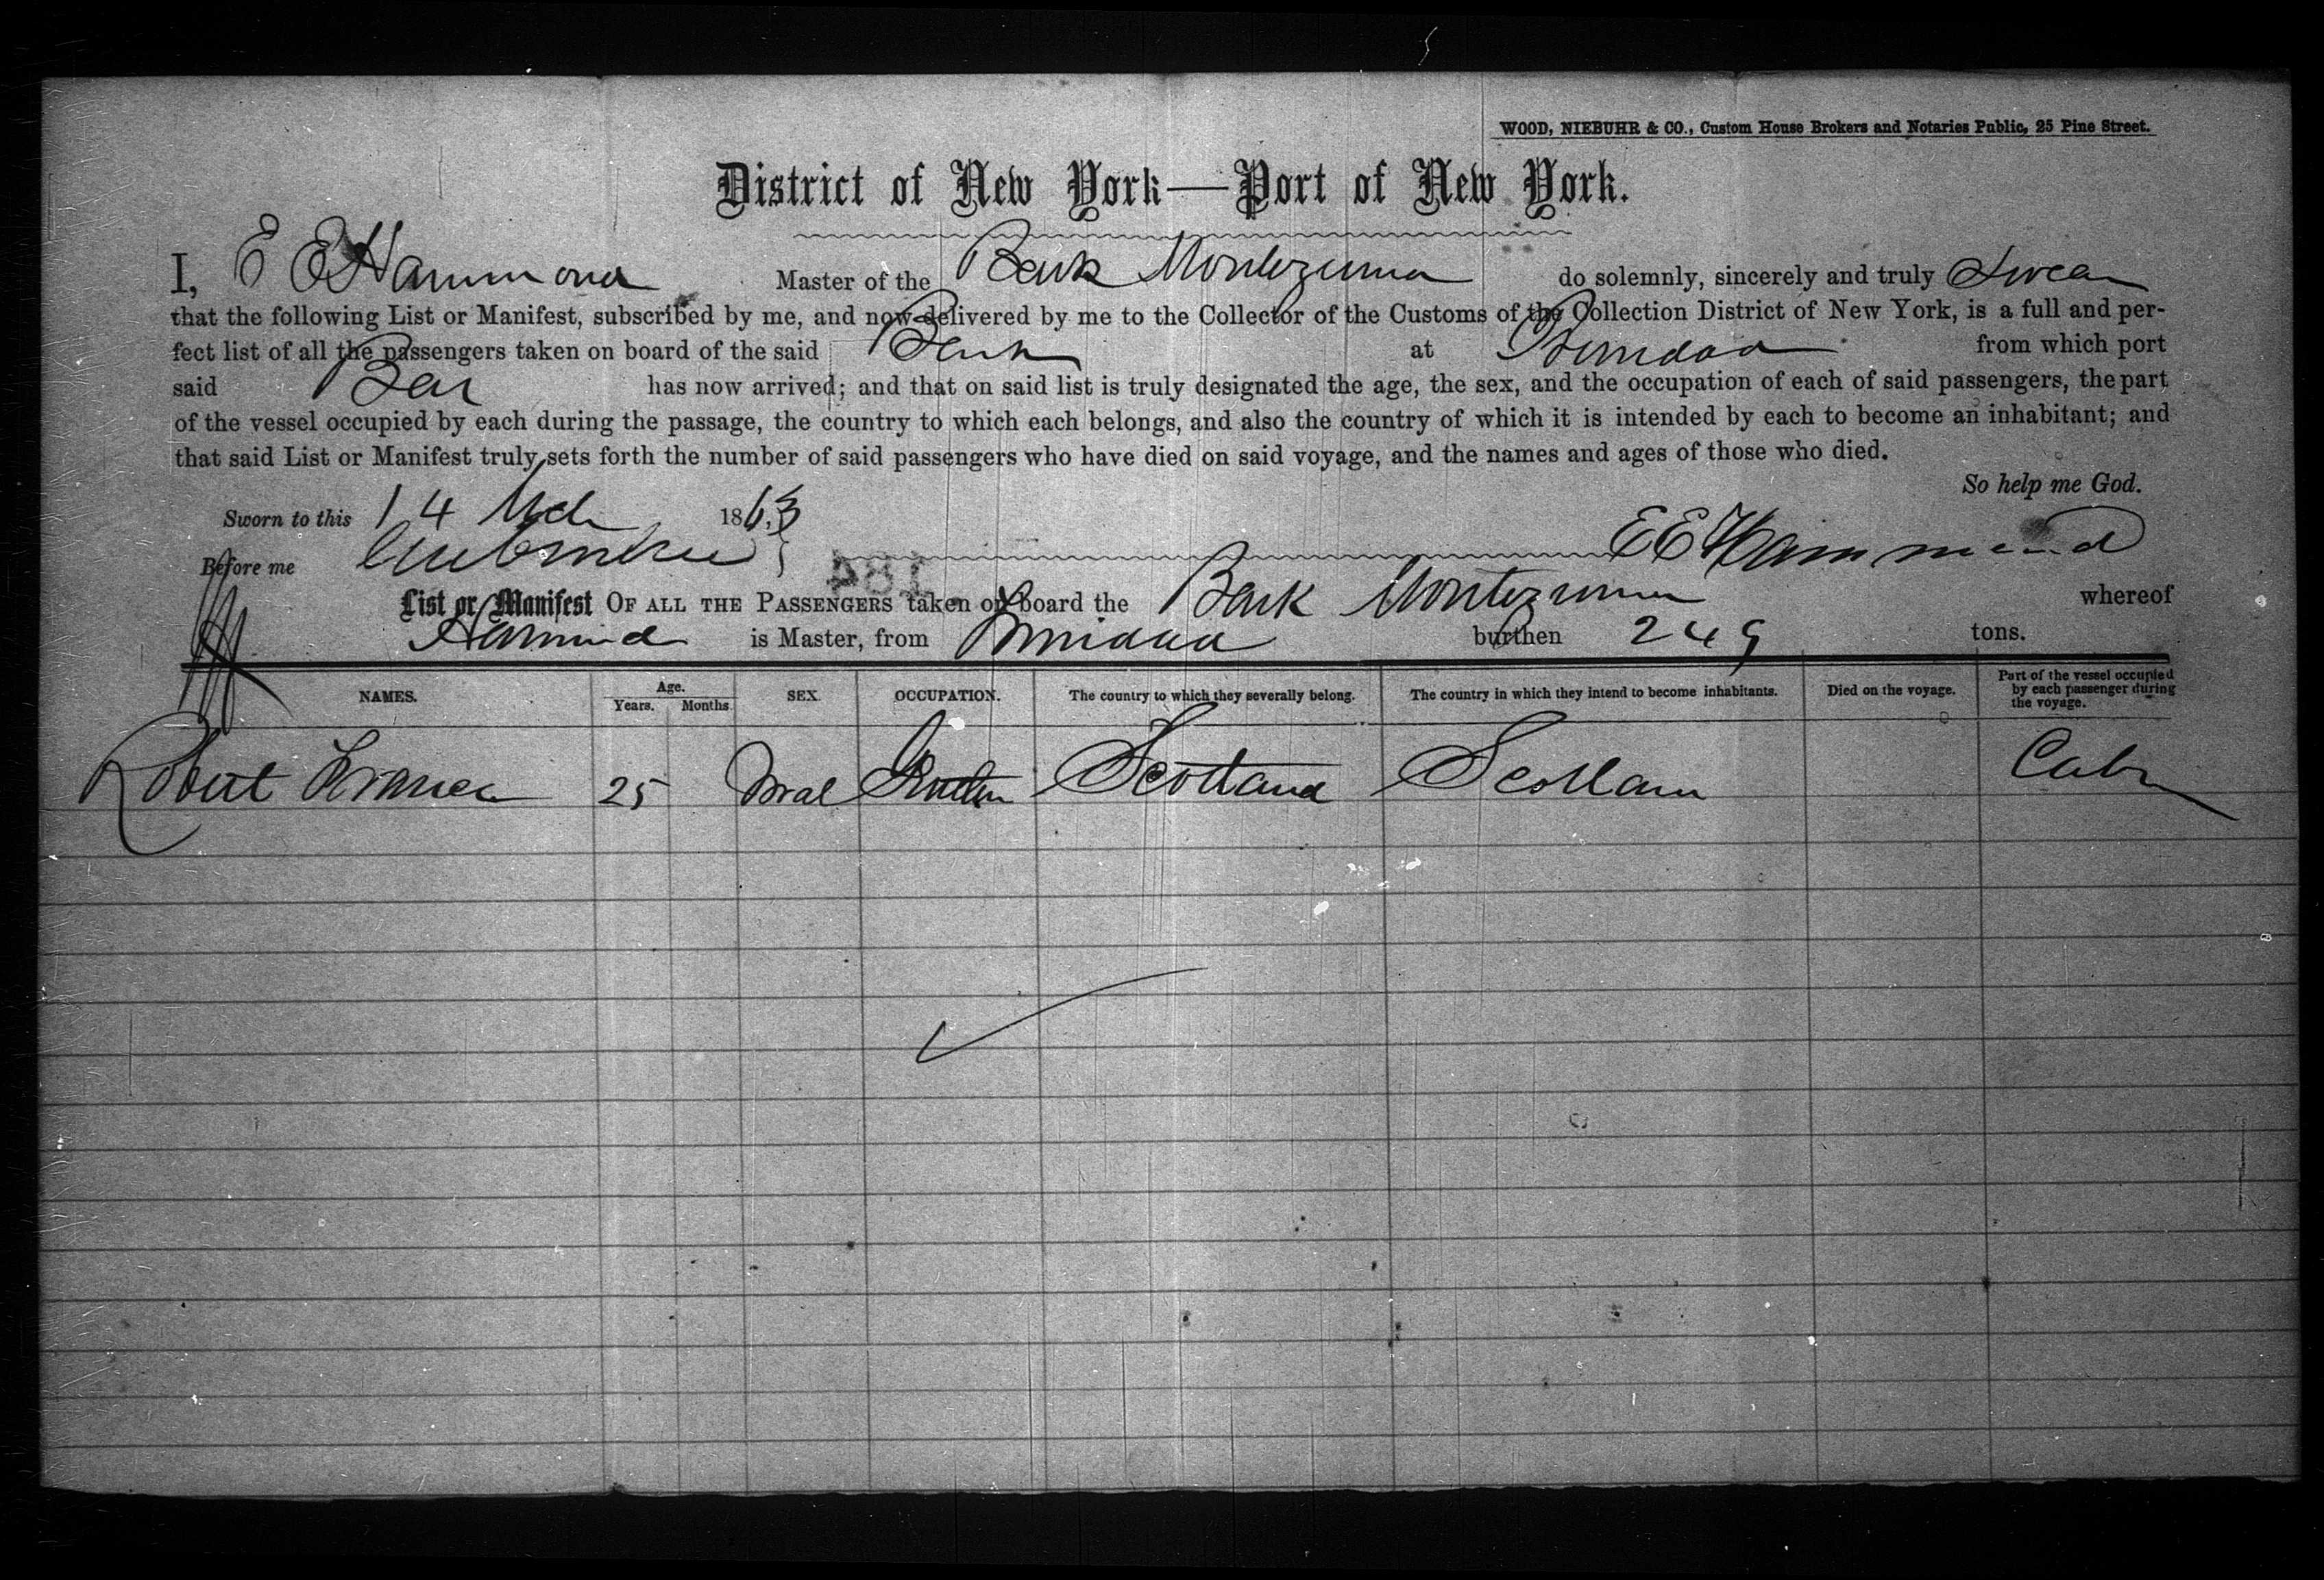 WOOD, NIEBUHR & CO., Custom House Brokers and Notaries Public, 25 Pine Street.
District of New York—Port of New York.
I, E E Hammond Master of the Bark Montezuma do solemnly, sincerely and truly Swear
that the following List or Manifest, subscribed by me, and now delivered by me to the Collector of the Customs of the Collection District of New York, is a full and per-
fect list of all the passengers taken on board of the said Bark at Trinidad from which port
said Bark has now arrived; and that on said list is truly designated the age, the sex, and the occupation of each of said passengers, the part
of the vessel occupied by each during the passage, the country to which each belongs, and also the country of which it is intended by each to become an inhabitant; and
that said List or Manifest truly sets forth the number of said passengers who have died on said voyage, and the names and ages of those who died.
So help me God.
Sworn to this 14 Mch 1863
Before me E E Hammond
184
List or Manifest OF ALL THE PASSENGERS taken on board the Bark Montezuma whereof
Hammond is Master, from Trinidad burthen 249 tons.
NAMES. Age. Years. Months. SEX. OCCUPATION. The country to which they severally belong. The country in which they intend to become inhabitants. Died on the voyage. Part of the vessel occupied by each passenger during the voyage.
Robert 25 Mal Scotland Scotland Cabn